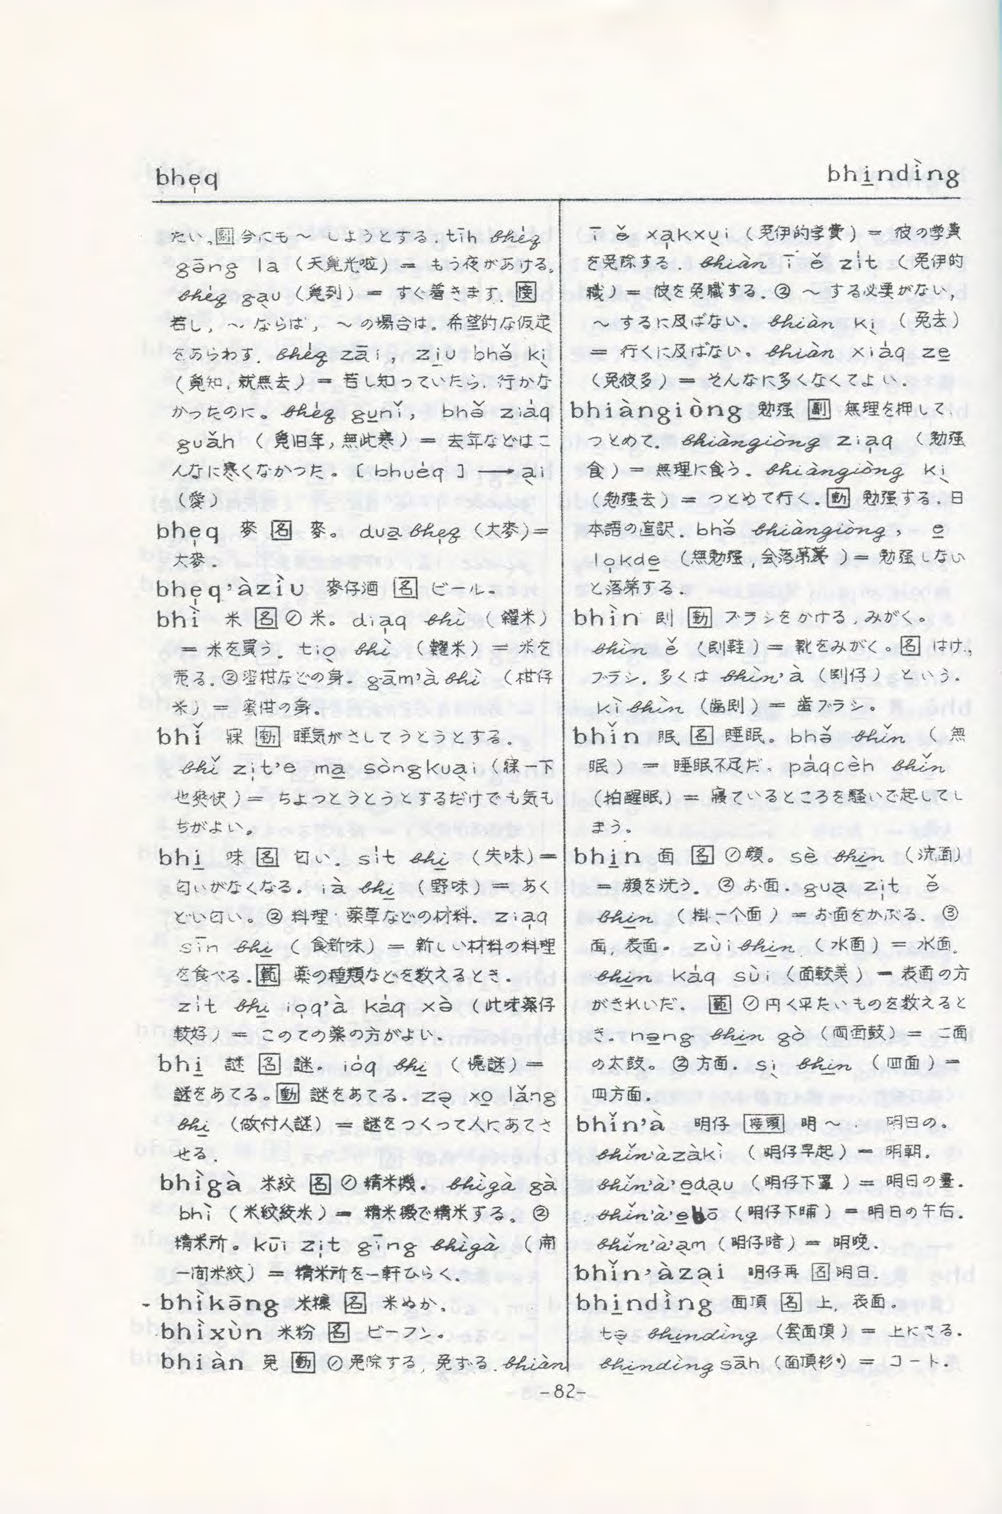 bhẹq
bhi̱ndìng
たい。副 今にも〜しようとする. tīh bhéq
gāng la (天覓光啦) = もう夜があける。
bhéq gạu (覓到) = すぐ着きます. 接
若し, 〜ならば, 〜の場合は. 希望的な仮定
をあらわす. bhéq zāi, ziu bhǒ kị
(覓知, 就無去) = 若し知っていたら, 行かな
かったのに。 bhéq gu̱nǐ, bhǒ ziáq
guǎh (覓旧年, 無此寒) = 去年などはこ
んなに寒くなかった。 [ bhuéq ] → ại
(愛)
bhẹq 麥 名 麥。 dua̱ bhẹq (大麥)=
大麥.
bhẹq'àziu 麥仔酒 名 ビール.
bhì 米 名 ① 米。 diạq bhì (糴米)
= 米を買う. tiọ bhì (糶米) = 米を
売る. ② 蜜柑などの身. gām'à bhì (柑仔
米) = 蜜柑の身.
bhǐ 寐 動 睡気がさしてうとうとする.
bhǐ zịt'e ma̱ sòngkuại (寐一下
也爽快) = ちょっとうとうとするだけでも気も
ちがよい。
bhi̱ 味 名 匂い. sít bhi̱ (失味) =
匂いがなくなる. ià bhi̱ (野味) = あく
どい匂い。 ② 料理·薬草などの材料. ziạq
sīn bhi̱ (食新味) = 新しい材料の料理
を食べる. 範 薬の種類などを数えるとき.
zít bhi̱ iọq'à káq xà (此味薬仔
較好) = このての薬の方がよい.
bhi̱ 謎 名 謎. ióq bhi̱ (臆謎) =
謎をあてる。 動 謎をあてる. zə̣ xo̱ lǎng
bhi̱ (做付人謎) = 謎をつくって人にあてさ
せる.
bhìgà 米絞 名 ① 精米機. bhìgà gà
bhì (米絞絞米) = 精米機で精米する。 ②
精米所. kūi zịt gīng bhìgà (開
一間米絞) = 精米所を一軒ひらく.
bhìkāng 米糠 名 米ぬか.
bhìxùn 米粉 名 ビーフン.
bhiàn 免 動 ① 免除する, 免ずる. bhiàn
ī ě xạkxụi (免伊的学費) = 彼の学費
を免除する. bhiàn ī ě zít (免伊的
職) = 彼を免職する. ② 〜する必要がない,
〜するに及ばない. bhiàn kị (免去)
= 行くに及ばない。 bhiàn xiáq ze̱
(免彼多) = そんなに多くなくてよい.
bhiàngiòng 勉强 副 無理を押して,
つとめて. bhiàngiòng ziạq (勉强
食) = 無理に食う. bhiàngiòng kị
(勉强去) = つとめて行く. 動 勉强する. 日
本語の直訳. bhǒ bhiàngiòng, e̱
lọkde (無勉强, 会落第) = 勉强しない
と落第する.
bhìn 刷 動 ブラシをかける, みがく。
bhìn ě (刷鞋) = 靴をみがく。 名 はけ,
ブラシ. 多くは bhìn'à (刷仔) という.
kì bhìn (歯刷) = 歯ブラシ.
bhǐn 眠 名 睡眠. bhǒ bhǐn (無
眠) = 睡眠不足だ. páqcèh bhǐn
(拍醒眠) = 寝ているところを騒いで起してし
まう.
bhi̱n 面 名 ① 顔. sè bhi̱n (洗面)
= 顔を洗う. ② お面. gua̱ zịt ě
bhi̱n (掛一个面) = お面をかぶる. ③
面, 表面. zùi bhi̱n (水面) = 水面.
bhi̱n káq sùi (面較美) = 表面の方
がきれいだ. 範 ① 円く平たいものを数えると
き. nəng bhi̱n gò (両面鼓) = 二面
の太鼓. ② 方面. sị bhi̱n (四面) =
四方面.
bhǐn'à 明仔 接頭 明〜 明日の.
bhǐn'àzàkì (明仔早起) = 明朝.
bhǐn'à'e̱dạu (明仔下罩) = 明日の昼.
bhǐn'à'e̱bō (明仔下晡) = 明日の午后.
bhǐn'à'ạm (明仔暗) = 明晩.
bhǐn'àzại 明仔再 名 明日.
bhi̱ndìng 面頂 名 上, 表面.
tə̣ bhi̱ndìng (套面頂) = 上にきる.
bhi̱ndìng sāh (面頂衫) = コート.
-82-